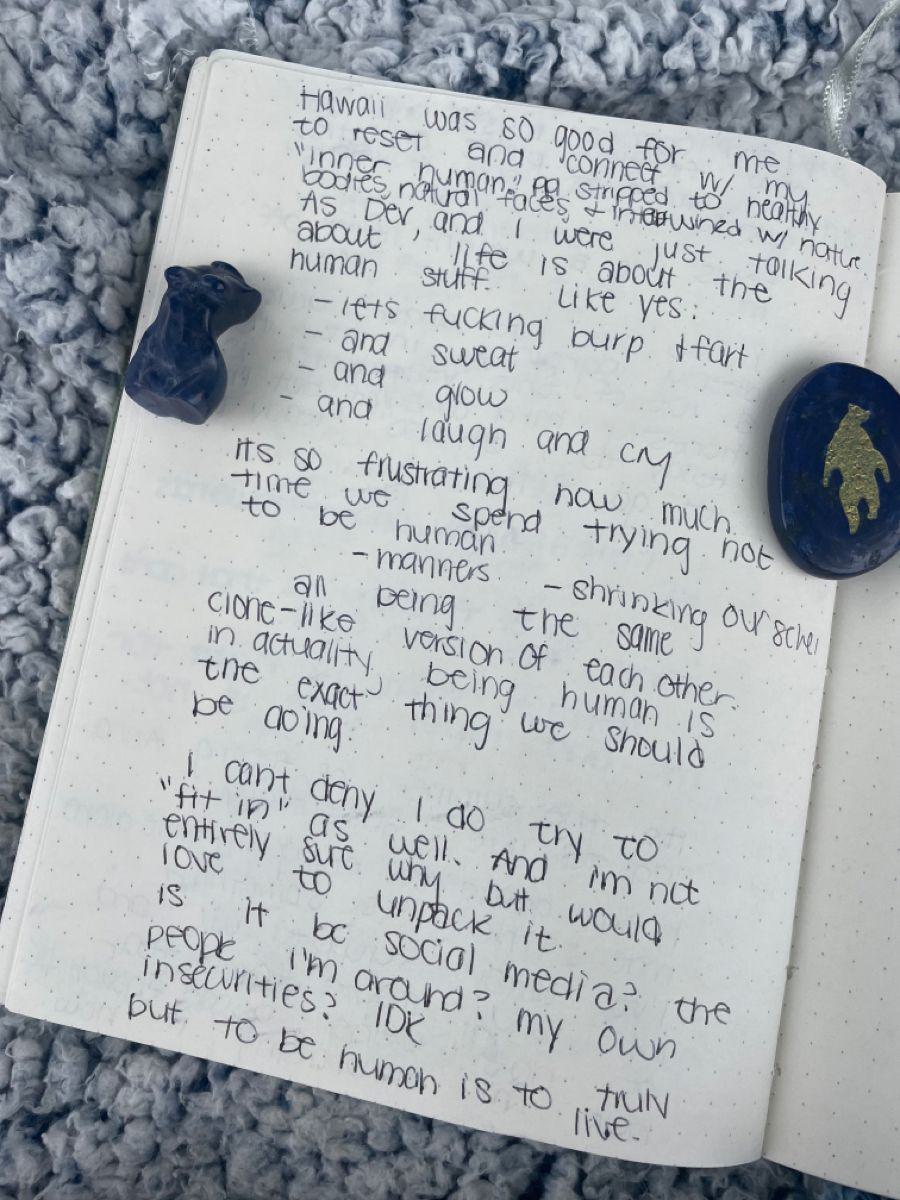 Hawaii was so good for me
to reset and connect w/ my
"inner human," stripped to healthy
bodies, natural faces, + intertwined w/ nature.
As Dev, and I were just talking
about life is about the
human stuff. Like yes:
- lets fucking burp + fart
- and sweat
- and grow
- and laugh and cry
its so frustrating how much
time we spend trying not
to be human
- manners - shrinking ourselves
all being the same
clone-like version of each other.
in actuality, being human is
the exact thing we should
be doing.
I cant deny I do try to
"fit in" as well. And im not
entirely sure why but would
love to unpack it.
is it bc social media? the
people i'm around? my own
insecurities? IDK
but to be human is to truly
live.